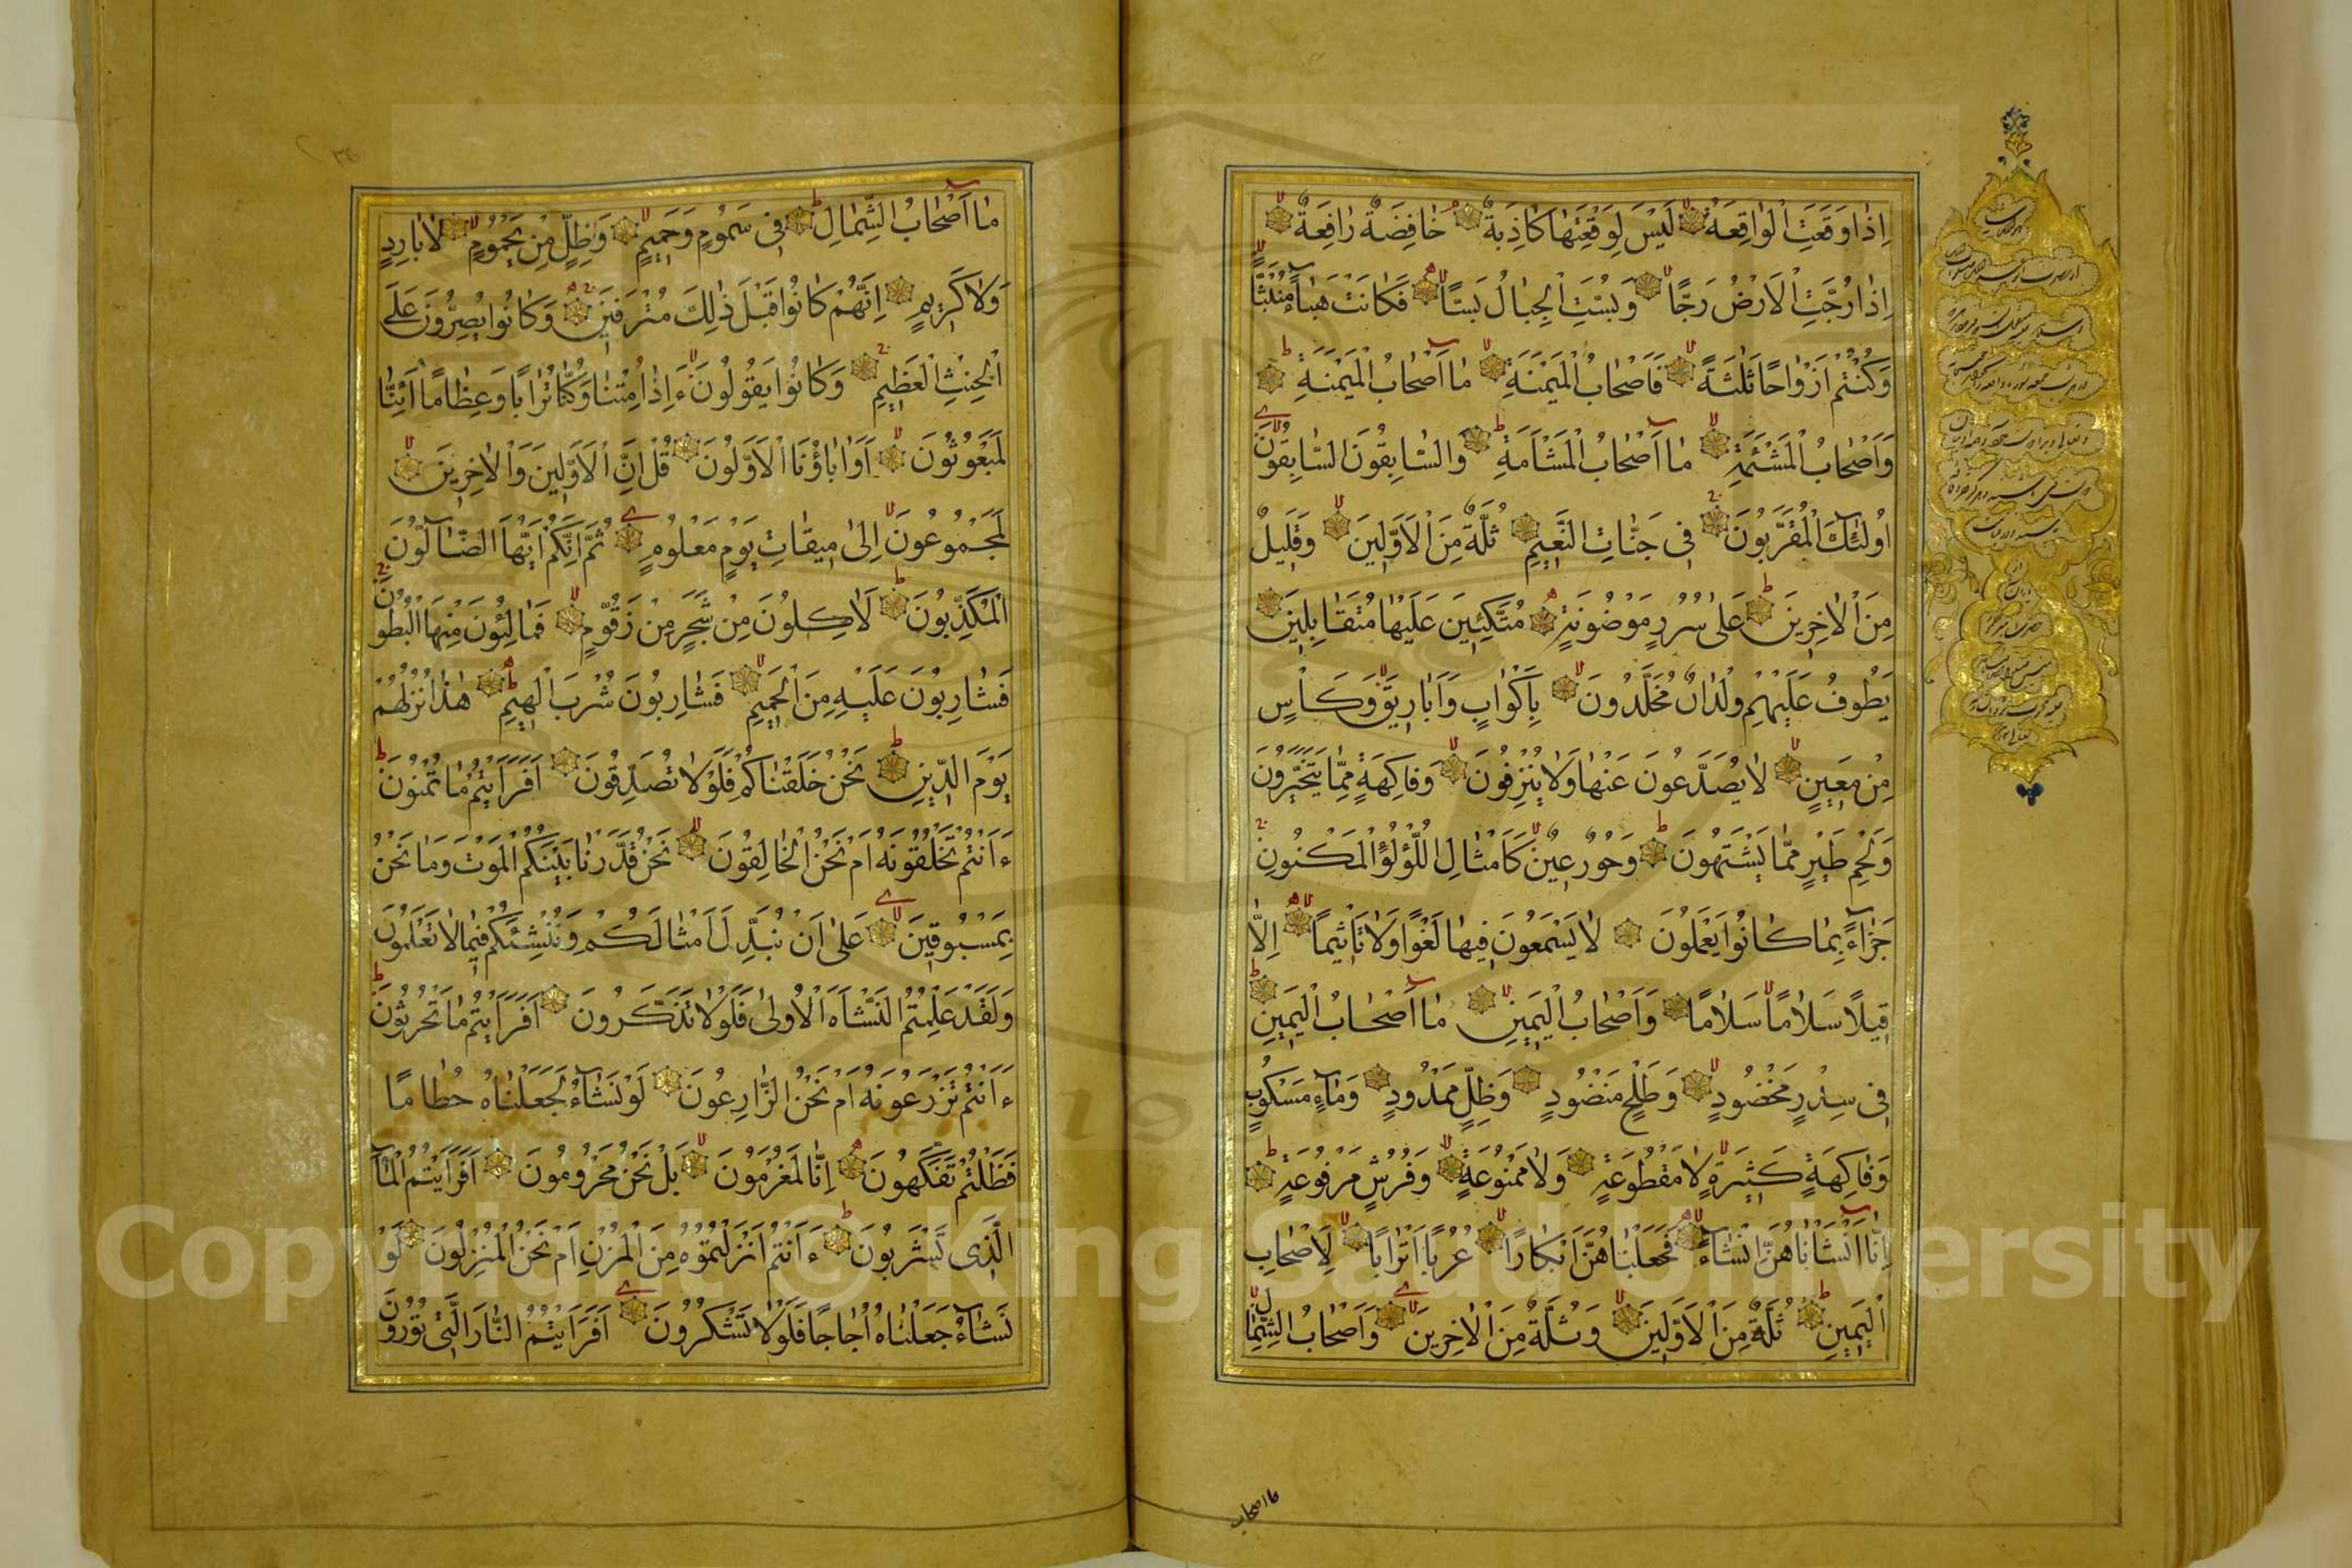 اِذَا وَقَعَتِ الْوَاقِعَةُ لَيْسَ لِوَقْعَتِهَا كَاذِبَةٌ خَافِضَةٌ رَافِعَةٌ
اِذَا رُجَّتِ الْاَرْضُ رَجًّا وَبُسَّتِ الْجِبَالُ بَسًّا فَكَانَتْ هَبَاءً مُنْبَثًّا
وَكُنْتُمْ اَزْوَاجًا ثَلٰثَةً فَاَصْحَابُ الْمَيْمَنَةِ مَا اَصْحَابُ الْمَيْمَنَةِ
وَاَصْحَابُ الْمَشْئَمَةِ مَا اَصْحَابُ الْمَشْاَمَةِ وَالسَّابِقُونَ السَّابِقُونَ
اُولٰئِكَ الْمُقَرَّبُونَ فِى جَنَّاتِ النَّعِيمِ ثُلَّةٌ مِنَ الْاَوَّلِينَ وَقَلِيلٌ
مِنَ الْاٰخِرِينَ عَلٰى سُرُرٍ مَوْضُونَةٍ مُتَّكِئِينَ عَلَيْهَا مُتَقَابِلِينَ
يَطُوفُ عَلَيْهِمْ وِلْدَانٌ مُخَلَّدُونَ بِاَكْوَابٍ وَاَبَارِيقَ وَكَاْسٍ
مِنْ مَعِينٍ لَا يُصَدَّعُونَ عَنْهَا وَلَا يُنْزِفُونَ وَفَاكِهَةٍ مِمَّا يَتَخَيَّرُونَ
وَلَحْمِ طَيْرٍ مِمَّا يَشْتَهُونَ وَحُورٌ عِينٌ كَاَمْثَالِ اللُّؤْلُؤِ الْمَكْنُونِ
جَزَاءً بِمَا كَانُوا يَعْمَلُونَ لَا يَسْمَعُونَ فِيهَا لَغْوًا وَلَا تَاْثِيمًا اِلَّا
قِيلًا سَلَامًا سَلَامًا وَاَصْحَابُ الْيَمِينِ مَا اَصْحَابُ الْيَمِينِ
فِى سِدْرٍ مَخْضُودٍ وَطَلْحٍ مَنْضُودٍ وَظِلٍّ مَمْدُودٍ وَمَاءٍ مَسْكُوبٍ
وَفَاكِهَةٍ كَثِيرَةٍ لَا مَقْطُوعَةٍ وَلَا مَمْنُوعَةٍ وَفُرُشٍ مَرْفُوعَةٍ
اِنَّا اَنْشَاْنَاهُنَّ اِنْشَاءً فَجَعَلْنَاهُنَّ اَبْكَارًا عُرُبًا اَتْرَابًا لِاَصْحَابِ
الْيَمِينِ ثُلَّةٌ مِنَ الْاَوَّلِينَ وَثُلَّةٌ مِنَ الْاٰخِرِينَ وَاَصْحَابُ الشِّمَالِ
ما اصحاب
مَا اَصْحَابُ الشِّمَالِ فِى سَمُومٍ وَحَمِيمٍ وَظِلٍّ مِنْ يَحْمُومٍ لَا بَارِدٍ
وَلَا كَرِيمٍ اِنَّهُمْ كَانُوا قَبْلَ ذٰلِكَ مُتْرَفِينَ وَكَانُوا يُصِرُّونَ عَلَى
الْحِنْثِ الْعَظِيمِ وَكَانُوا يَقُولُونَ ءَاِذَا مِتْنَا وَكُنَّا تُرَابًا وَعِظَامًا اَئِنَّا
لَمَبْعُوثُونَ اَوَاٰبَاؤُنَا الْاَوَّلُونَ قُلْ اِنَّ الْاَوَّلِينَ وَالْاٰخِرِينَ
لَمَجْمُوعُونَ اِلٰى مِيقَاتِ يَوْمٍ مَعْلُومٍ ثُمَّ اِنَّكُمْ اَيُّهَا الضَّالُّونَ
الْمُكَذِّبُونَ لَاٰكِلُونَ مِنْ شَجَرٍ مِنْ زَقُّومٍ فَمَالِئُونَ مِنْهَا الْبُطُونَ
فَشَارِبُونَ عَلَيْهِ مِنَ الْحَمِيمِ فَشَارِبُونَ شُرْبَ الْهِيمِ هٰذَا نُزُلُهُمْ
يَوْمَ الدِّينِ نَحْنُ خَلَقْنَاكُمْ فَلَوْلَا تُصَدِّقُونَ اَفَرَاَيْتُمْ مَا تُمْنُونَ
ءَاَنْتُمْ تَخْلُقُونَهُ اَمْ نَحْنُ الْخَالِقُونَ نَحْنُ قَدَّرْنَا بَيْنَكُمُ الْمَوْتَ وَمَا نَحْنُ
بِمَسْبُوقِينَ عَلٰى اَنْ نُبَدِّلَ اَمْثَالَكُمْ وَنُنْشِئَكُمْ فِيمَا لَا تَعْلَمُونَ
وَلَقَدْ عَلِمْتُمُ النَّشْاَةَ الْاُولٰى فَلَوْلَا تَذَكَّرُونَ اَفَرَاَيْتُمْ مَا تَحْرُثُونَ
ءَاَنْتُمْ تَزْرَعُونَهُ اَمْ نَحْنُ الزَّارِعُونَ لَوْ نَشَاءُ لَجَعَلْنَاهُ حُطَامًا
فَظَلْتُمْ تَفَكَّهُونَ اِنَّا لَمُغْرَمُونَ بَلْ نَحْنُ مَحْرُومُونَ اَفَرَاَيْتُمُ الْمَاءَ
الَّذِى تَشْرَبُونَ ءَاَنْتُمْ اَنْزَلْتُمُوهُ مِنَ الْمُزْنِ اَمْ نَحْنُ الْمُنْزِلُونَ لَوْ
نَشَاءُ جَعَلْنَاهُ اُجَاجًا فَلَوْلَا تَشْكُرُونَ اَفَرَاَيْتُمُ النَّارَ الَّتِى تُورُونَ
Copyright © King Saud University